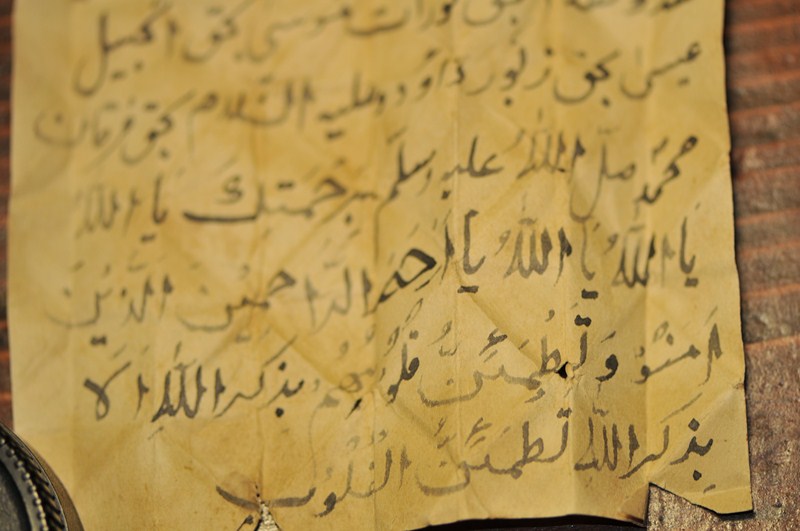 بحق تورات موسى بحق انجيل
عيسى بحق زبور داؤد عليه السلام بحق فرقان
محمّد صلّ اللهُ عليه اسلّم برحمتك يا الله
يَا اللهُ يَا اللهُ يا ارحمَ الرَّاحمينَ الذَّينَ
اَمنُوْ وَتَطْمَئِنُّ قُلُوْبُهُمْ بِذكرِ اللهِ اَلَا
بِذكرِ اللهِ تَطمَئنُّ القُلُوب